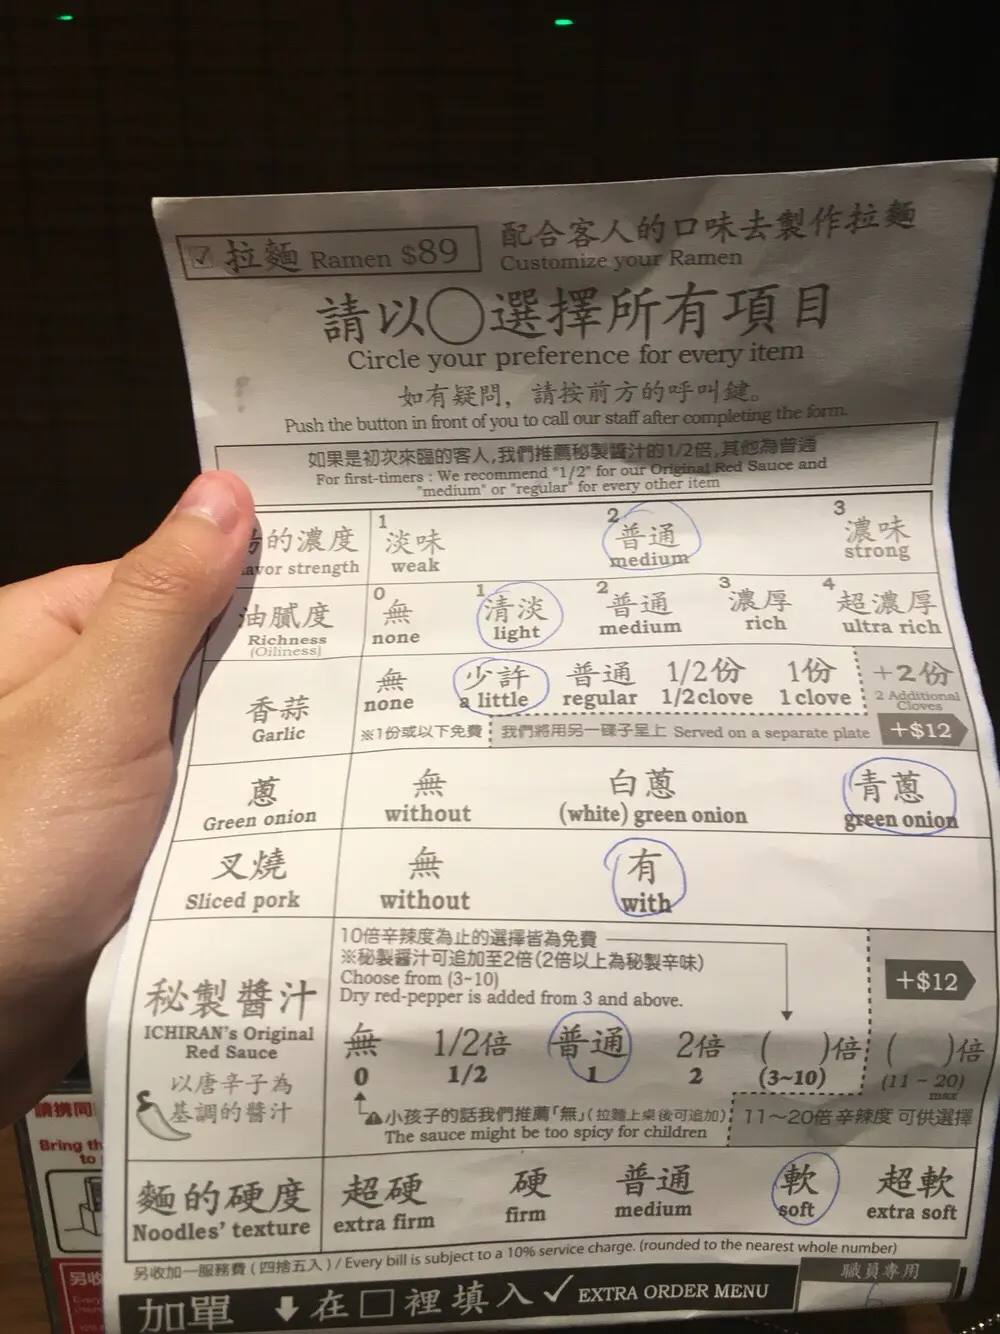 拉麵 Ramen $89
配合客人的口味去製作拉麵
Customize your Ramen
請以○選擇所有項目
Circle your preference for every item
如有疑問，請按前方的呼叫鍵。
Push the button in front of you to call our staff after completing the form.
如果是初次來臨的客人,我們推薦秘製醬汁的1/2倍,其他為普通
For first-timers : We recommend "1/2" for our Original Red Sauce and
"medium" or "regular" for every other item
的濃度
avor strength
1 淡味 2 普通 3 濃味
weak medium strong
油膩度
Richness
(Oiliness)
0 無 1 清淡 2 普通 3 濃厚 4 超濃厚
none light medium rich ultra rich
香蒜
Garlic
無 少許 普通 1/2份 1份 +2份
none a little regular 1/2 clove 1 clove 2 Additional Cloves
※1份或以下免費 我們將用另一碟子呈上 Served on a separate plate +$12
蔥
Green onion
無 白蔥 青蔥
without (white) green onion green onion
叉燒
Sliced pork
無 有
without with
秘製醬汁
ICHIRAN's Original
Red Sauce
以唐辛子為
基調的醬汁
10倍辛辣度為止的選擇皆為免費
※秘製醬汁可追加至2倍(2倍以上為秘製辛味)
Choose from (3~10)
Dry red-pepper is added from 3 and above.
+$12
無 1/2倍 普通 2倍 ( )倍 ( )倍
0 1/2 1 2 (3~10) (11 ~ 20)
max
小孩子的話我們推薦「無」(拉麵上桌後可追加)
The sauce might be too spicy for children
11～20倍 辛辣度 可供選擇
麵的硬度
Noodles' texture
超硬 硬 普通 軟 超軟
extra firm firm medium soft extra soft
另收加一服務費 (四捨五入) / Every bill is subject to a 10% service charge. (rounded to the nearest whole number)
加單 在□裡填入✓ EXTRA ORDER MENU
職員專用
請携同
Bring th
to
另收